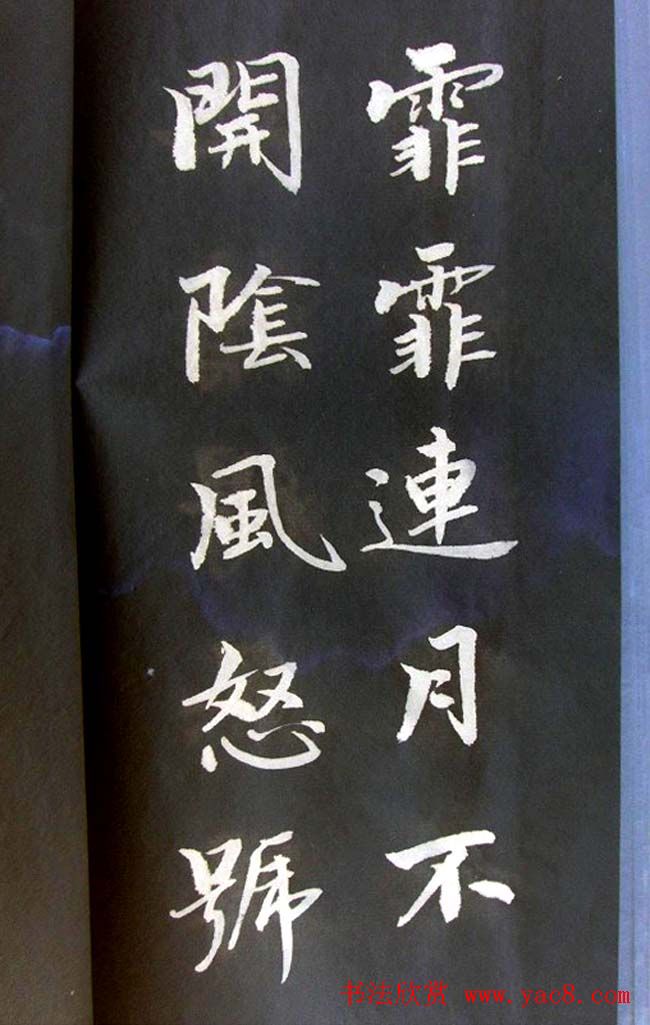 霏霏連月不
開陰風怒號
书法欣赏 www.yac8.com